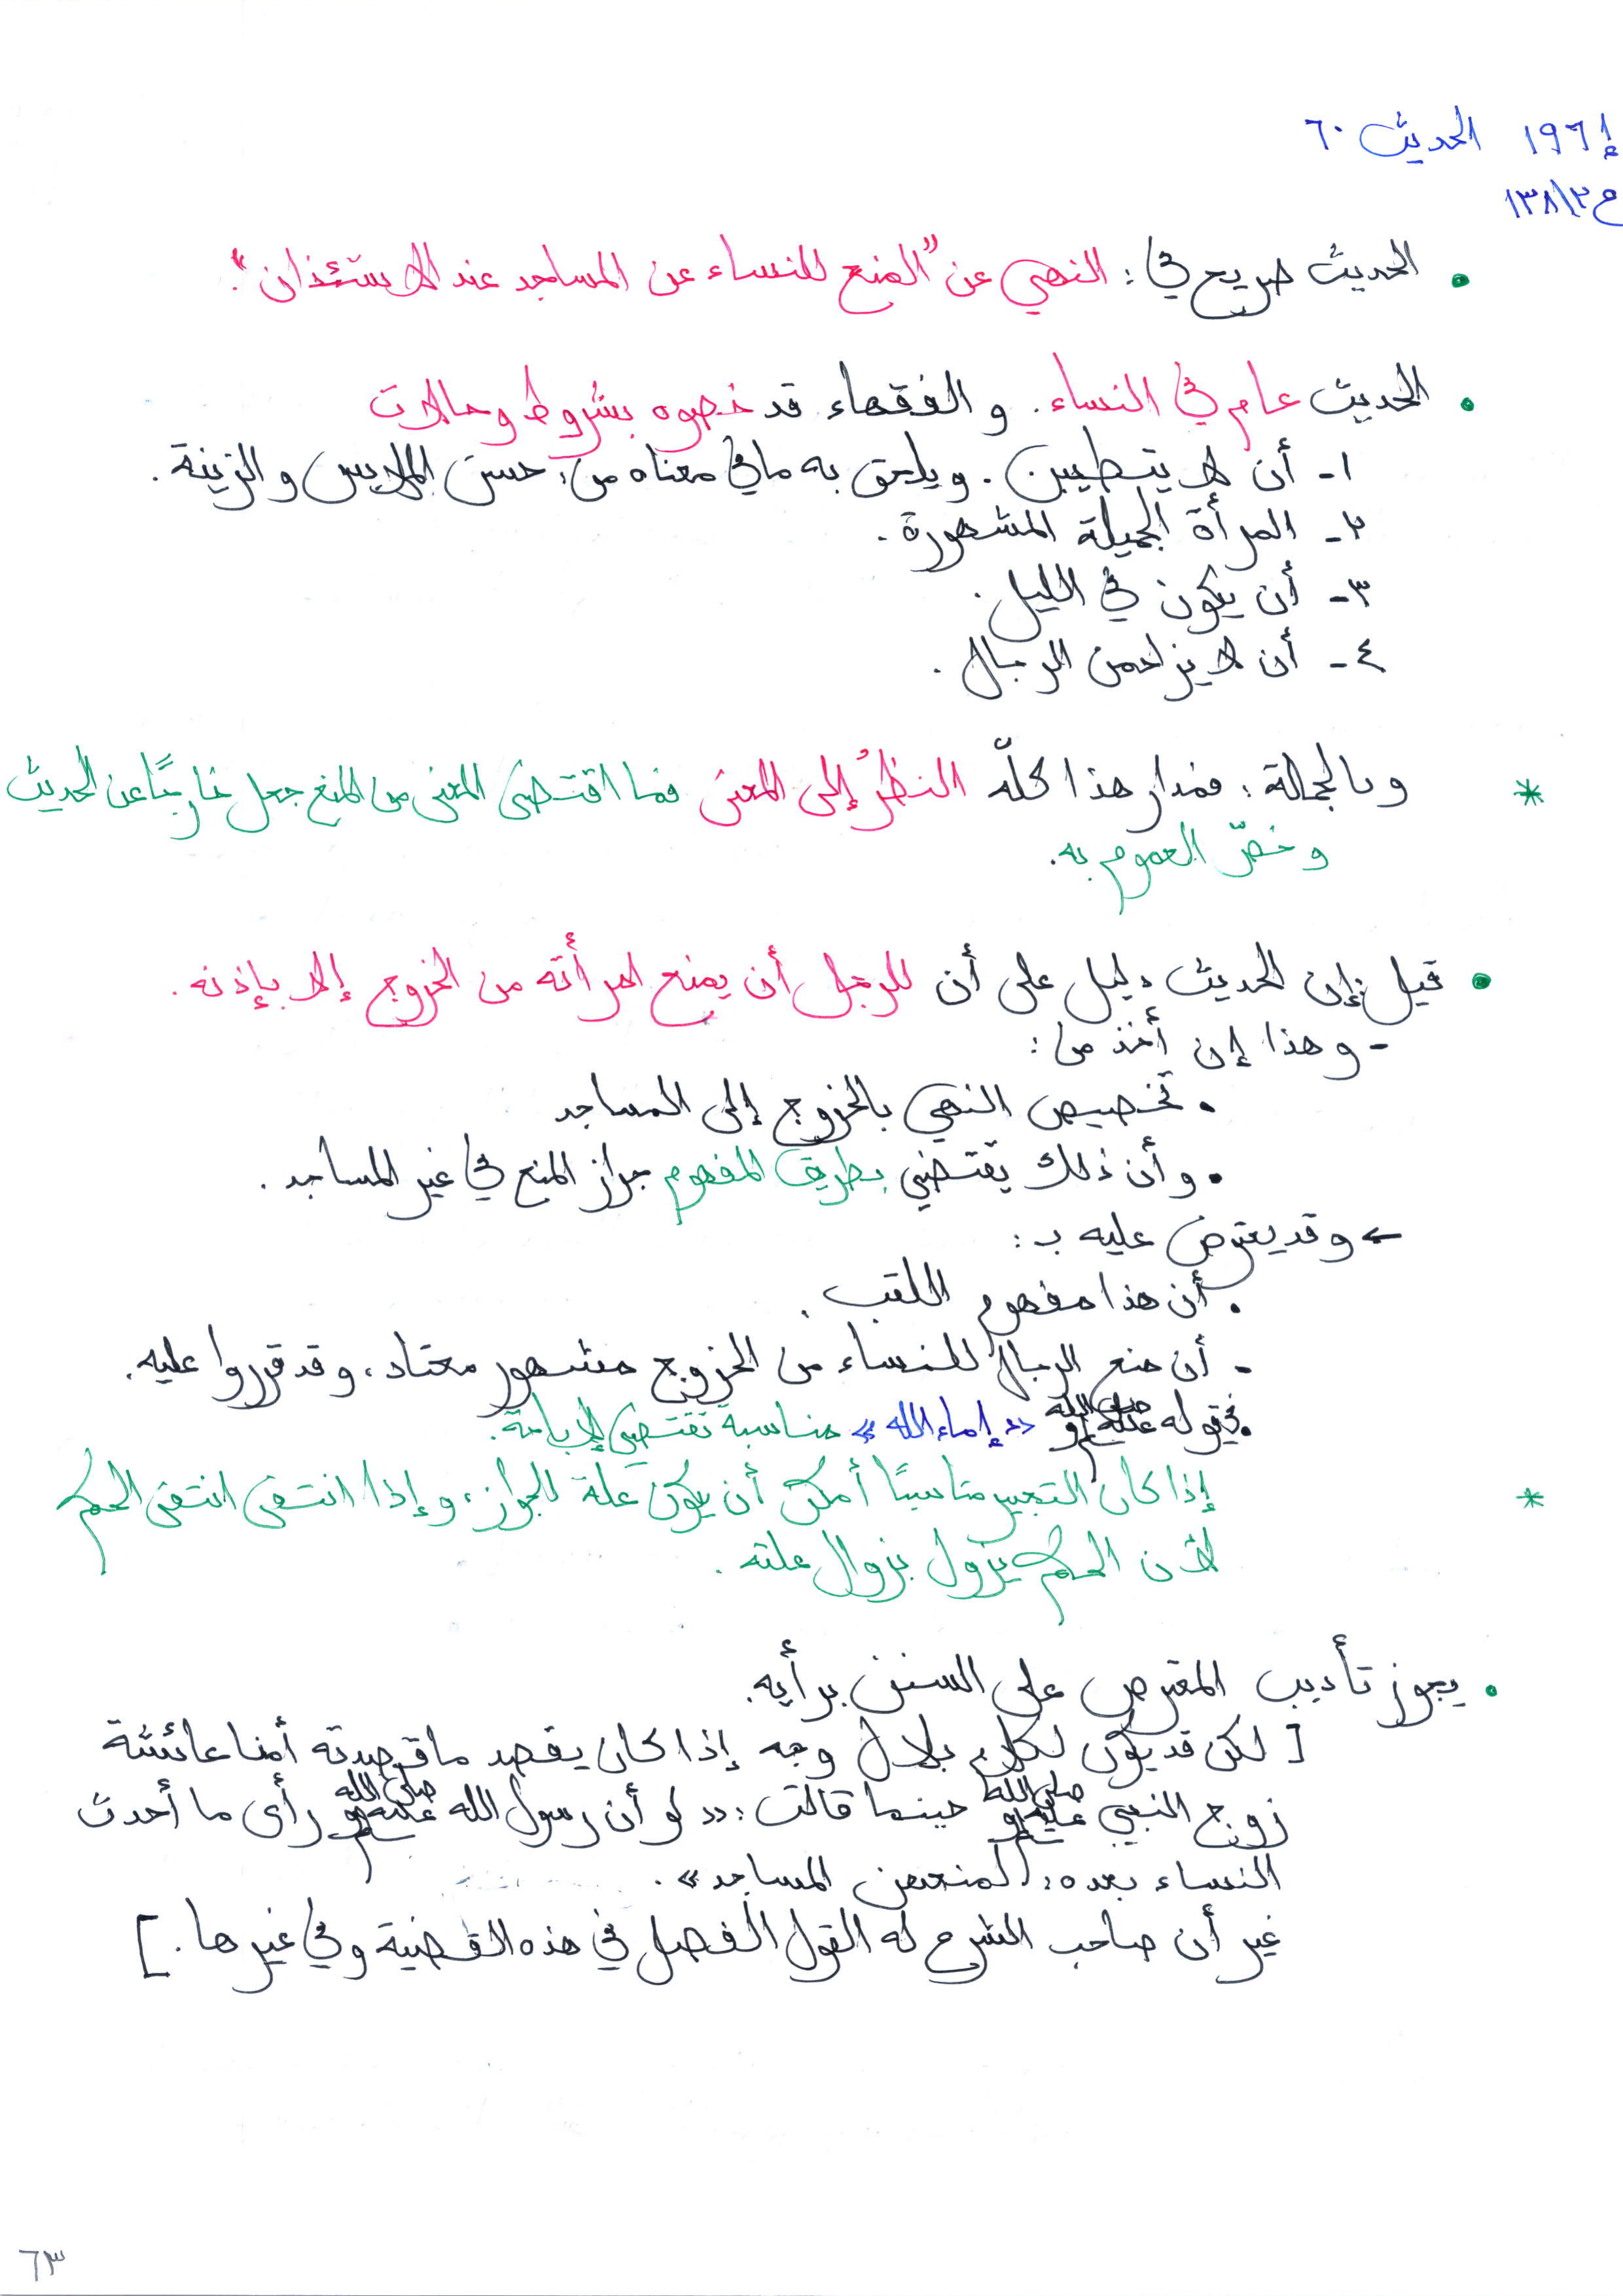 إ ١٩٦ الحديث ٦٠
ح ١٣٨/٢
• الحديث صريح في: النهي عن "المنع للنساء عن المساجد عند الاستئذان".
• الحديث عام في النساء. والفقهاء قد خصوه بشروط وحالات
١- أن لا يتطيبن. ويلحق به ما في معناه من: حسن الملابس والزينة.
٢- المرأة الجميلة المشهورة.
٣- أن يكون في الليل.
٤- أن لا يزاحمن الرجال.
* وبالجملة: فمدار هذا كلّه النظرُ إلى المعنى فما اقتضى المعنى من المنع جعل خارجًا عن الحديث
وخصّ العموم به.
• قيل: إن الحديث دليل على أن للرجل أن يمنع امرأته من الخروج إلا بإذنه.
- وهذا إن أُخذ من:
• تخصيص النهي بالخروج إلى المساجد
• وأن ذلك يقتضي بطريق المفهوم جواز المنع في غير المساجد.
← وقد يعترض عليه بـ:
• أن هذا مفهوم اللقب.
- أن منع الرجال للنساء من الخروج مشهور معتاد، وقد قرروا عليه.
• في قوله صلى الله عليه وسلم «إماء الله» مناسبة تقتضي الإباحة.
* إذا كان التعبير مناسبًا أمكن أن يكون علة للجواز، وإذا انتفى انتفى الحكم
لأن الحكم يزول بزوال علته.
• يجوز تأديب المعترض على السنن برأيه.
[ لكن قد يكون لكلام بلال وجه إذا كان يقصد ما قصدته أمنا عائشة
زوج النبي صلى الله عليه وسلم حينما قالت: «لو أن رسول الله صلى الله عليه وسلم رأى ما أحدث
النساء بعده: لمنعهن المساجد».
غير أن صاحب الشرع له القول الفصل في هذه القضية وفي غيرها. ]
٦٣